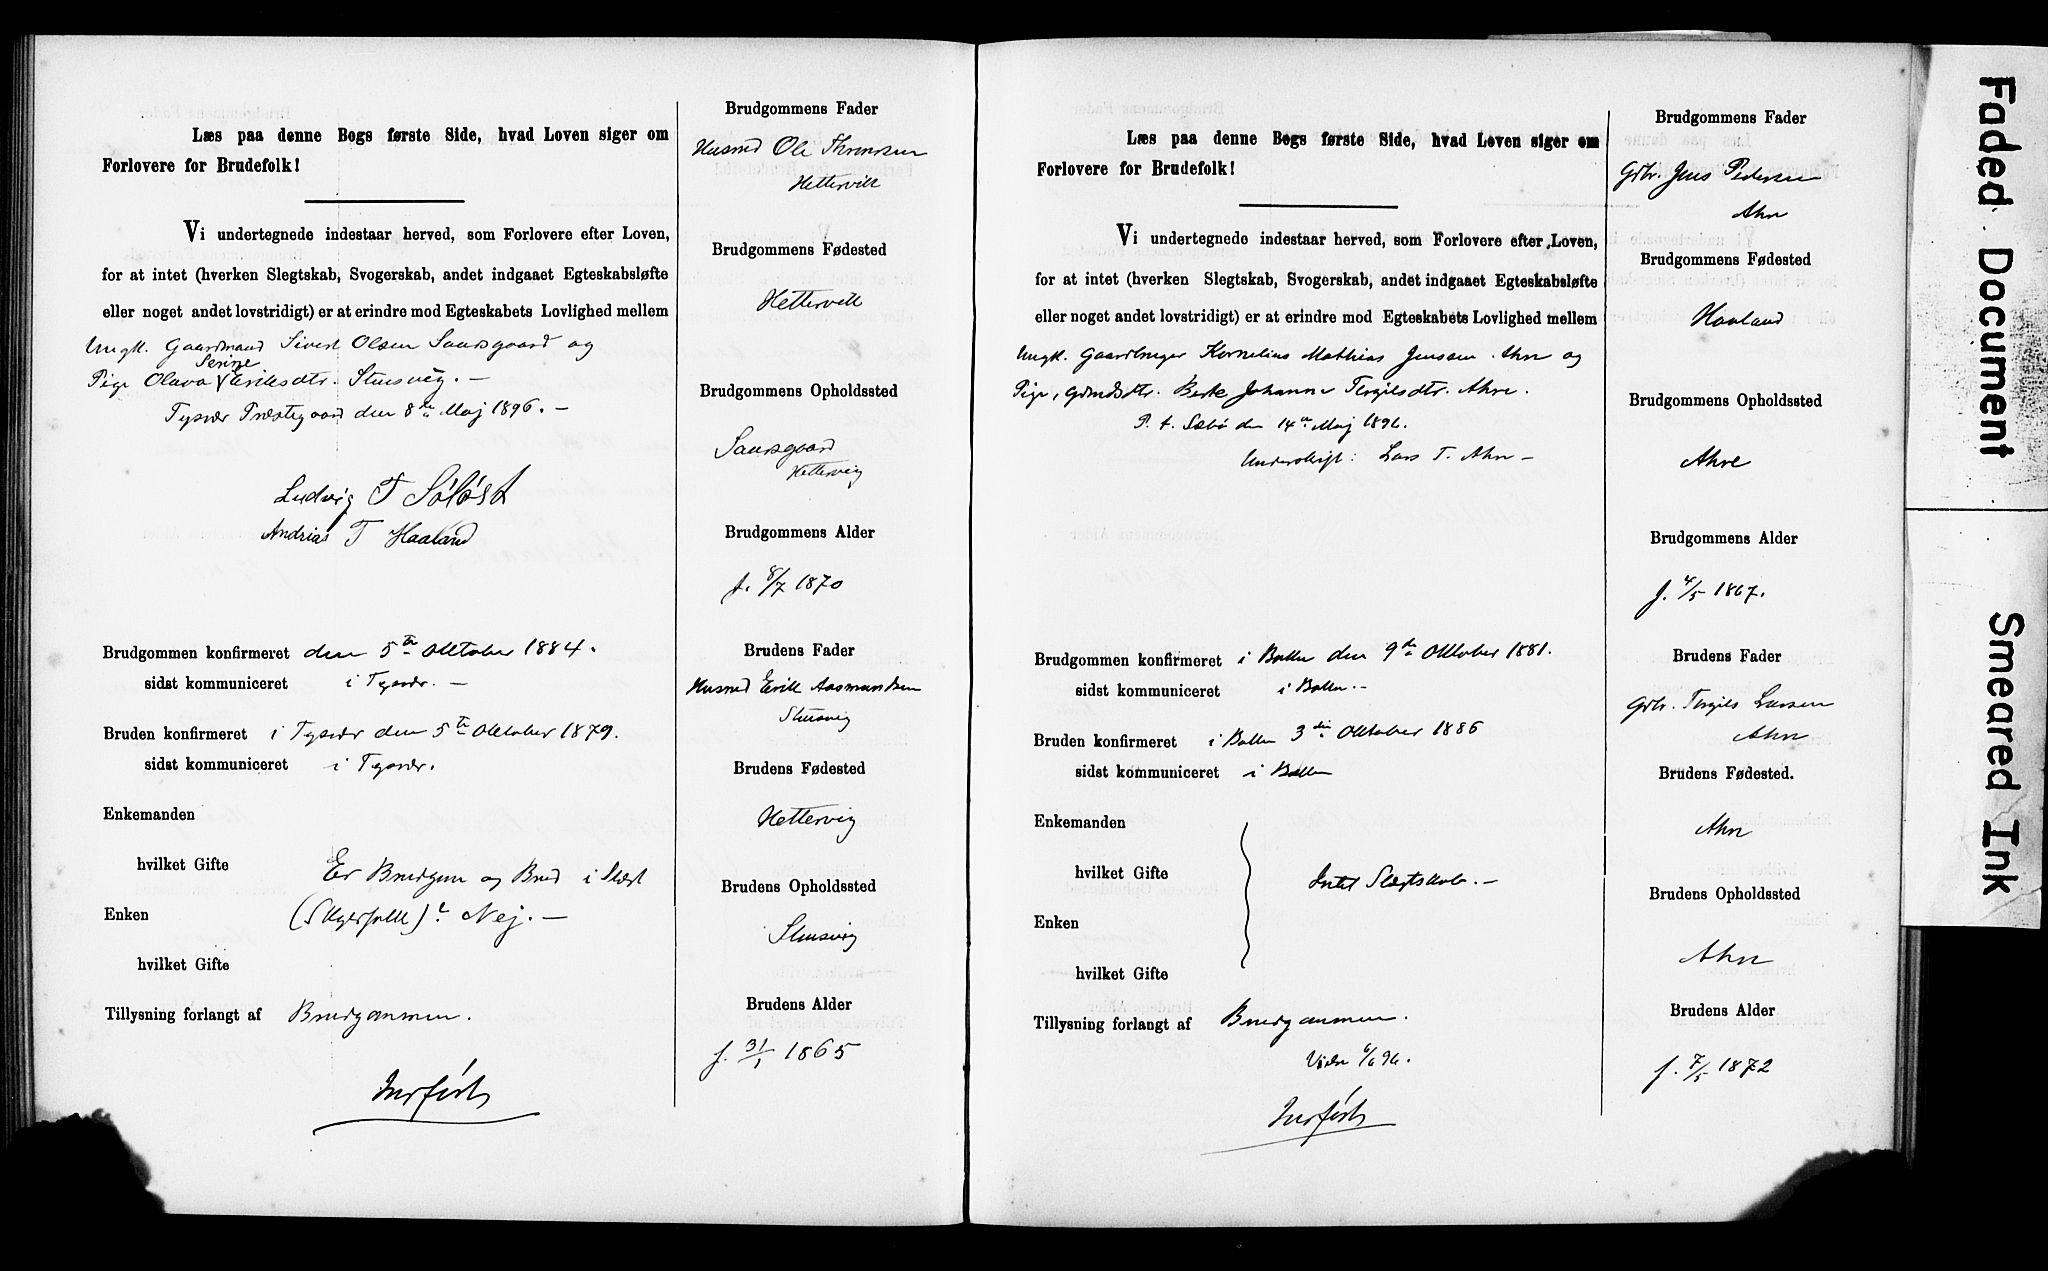 Læs paa denne Bogs første Side, hvad Loven siger om
Forlovere for Brudefolk!
Vi undertegnede indestaar herved, som Forlovere efter Loven,
for at intet (hverken Slegtskab, Svogerskab, andet indgaaet Egteskabsløfte
eller noget andet lovstridigt) er at erindre mod Egteskabets Lovlighed mellem
Ungk. Gaardmand Sivert Olsen Saursgaard og
Serine
Pige Olava Eriksdtr. Stusvig. —
Tysvær Præstegaard den 8de Maj 1896. —
Ludvig T
Andrias T Haaland
Brudgommen konfirmeret den 5te Oktober 1884.
sidst kommuniceret i Tysvær. —
Bruden konfirmeret i Tysvær den 5te Oktober 1879.
sidst kommuniceret i Tysvær.
Enkemanden
hvilket Gifte Er Brudgom og Brud i Slægt
Enken Nej. —
hvilket Gifte
Tillysning forlangt af Brudgommen.
Indført
Brudgommens Fader
Husmd Ole
Hettervik
Brudgommens Fødested
Hettervik
Brudgommens Opholdssted
Saursgaard
Hettervig
Brudgommens Alder
f. 8/7 1870
Brudens Fader
Husmd Erik Aasmundsen
Stusvig
Brudens Fødested
Hettervig
Brudens Opholdssted
Stusvig
Brudens Alder
f. 31/1 1865
Læs paa denne Bogs første Side, hvad Loven siger om
Forlovere for Brudefolk!
Vi undertegnede indestaar herved, som Forlovere efter Loven,
for at intet (hverken Slegtskab, Svogerskab, andet indgaaet Egteskabsløfte
eller noget andet lovstridigt) er at erindre mod Egteskabets Lovlighed mellem
Ungk. Gaardbruger Kornelius Mathias Jensen Ahre og
Pige, Grmdsdtr. Berte Johanne Tergilsdtr. Ahre.
P. t. Sæbø den 14de Maj 1896.
Underskrift: Lars T. Ahre —
Brudgommen konfirmeret i Bokken den 9de Oktober 1881.
sidst kommuniceret i Bokken. —
Bruden konfirmeret i Bokken 3die Oktober 1886
sidst kommuniceret i Bokken
Enkemanden
hvilket Gifte Intet Slægtskab. —
Enken
hvilket Gifte
Tillysning forlangt af Brudgommen.
Viede 6/6 96.
Indført
Brudgommens Fader
Gbr. Jens Pedersen
Ahre
Brudgommens Fødested
Haaland
Brudgommens Opholdssted
Ahre
Brudgommens Alder
f. 4/5 1867.
Brudens Fader
Gbr. Tergils Larsen
Ahre
Brudens Fødested.
Ahre
Brudens Opholdssted
Ahre
Brudens Alder
f. 7/5 1872
Faded Document
Smeared Ink